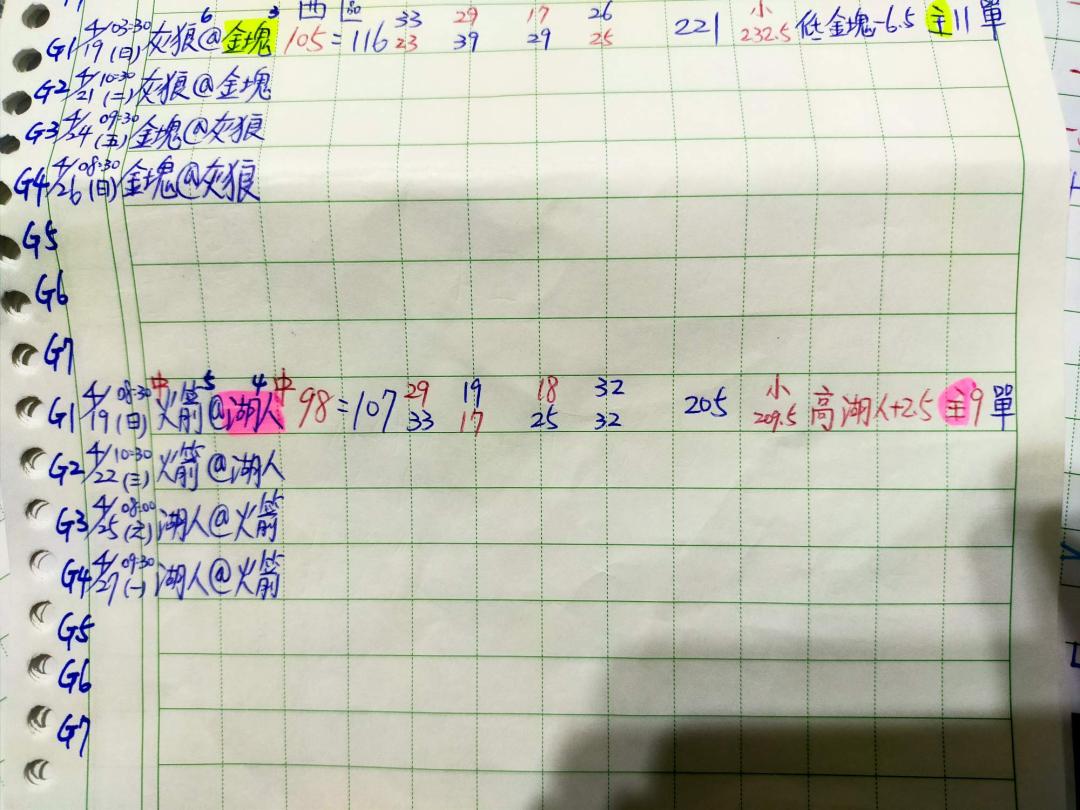 西區
6 3 33 29 17 26 小
G1 4/19 03:30 (日) 灰狼@金塊 105=116 23 39 29 25 221 232.5 低金塊-6.5 主11單
G2 4/21 10:30 (二) 灰狼@金塊
G3 4/24 09:30 (五) 金塊@灰狼
G4 4/26 08:30 (日) 金塊@灰狼
G5
G6
G7
中 5 4 中 29 19 18 32 小
G1 4/19 08:30 (日) 火箭@湖人 98=107 33 17 25 32 205 209.5 高湖人+2.5 主9單
G2 4/22 10:30 (三) 火箭@湖人
G3 4/25 08:00 (六) 湖人@火箭
G4 4/27 09:30 (一) 湖人@火箭
G5
G6
G7